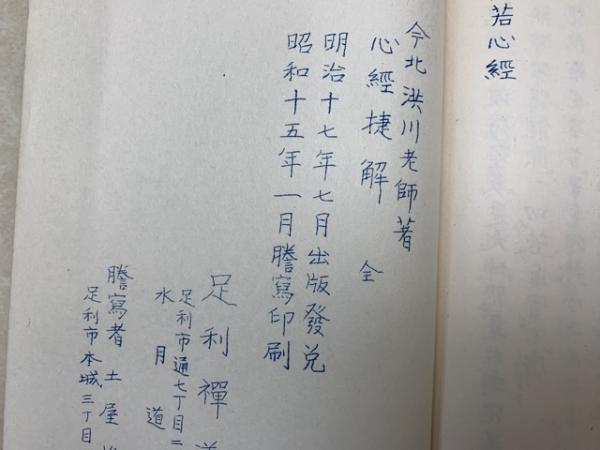 若心經
今北洪川老師著
心經捷解 全
明治十七年七月出版發兌
昭和十五年一月謄寫印刷
足利禪道
足利市通七丁目二
水月道
謄寫者 土屋
足利市本城三丁目